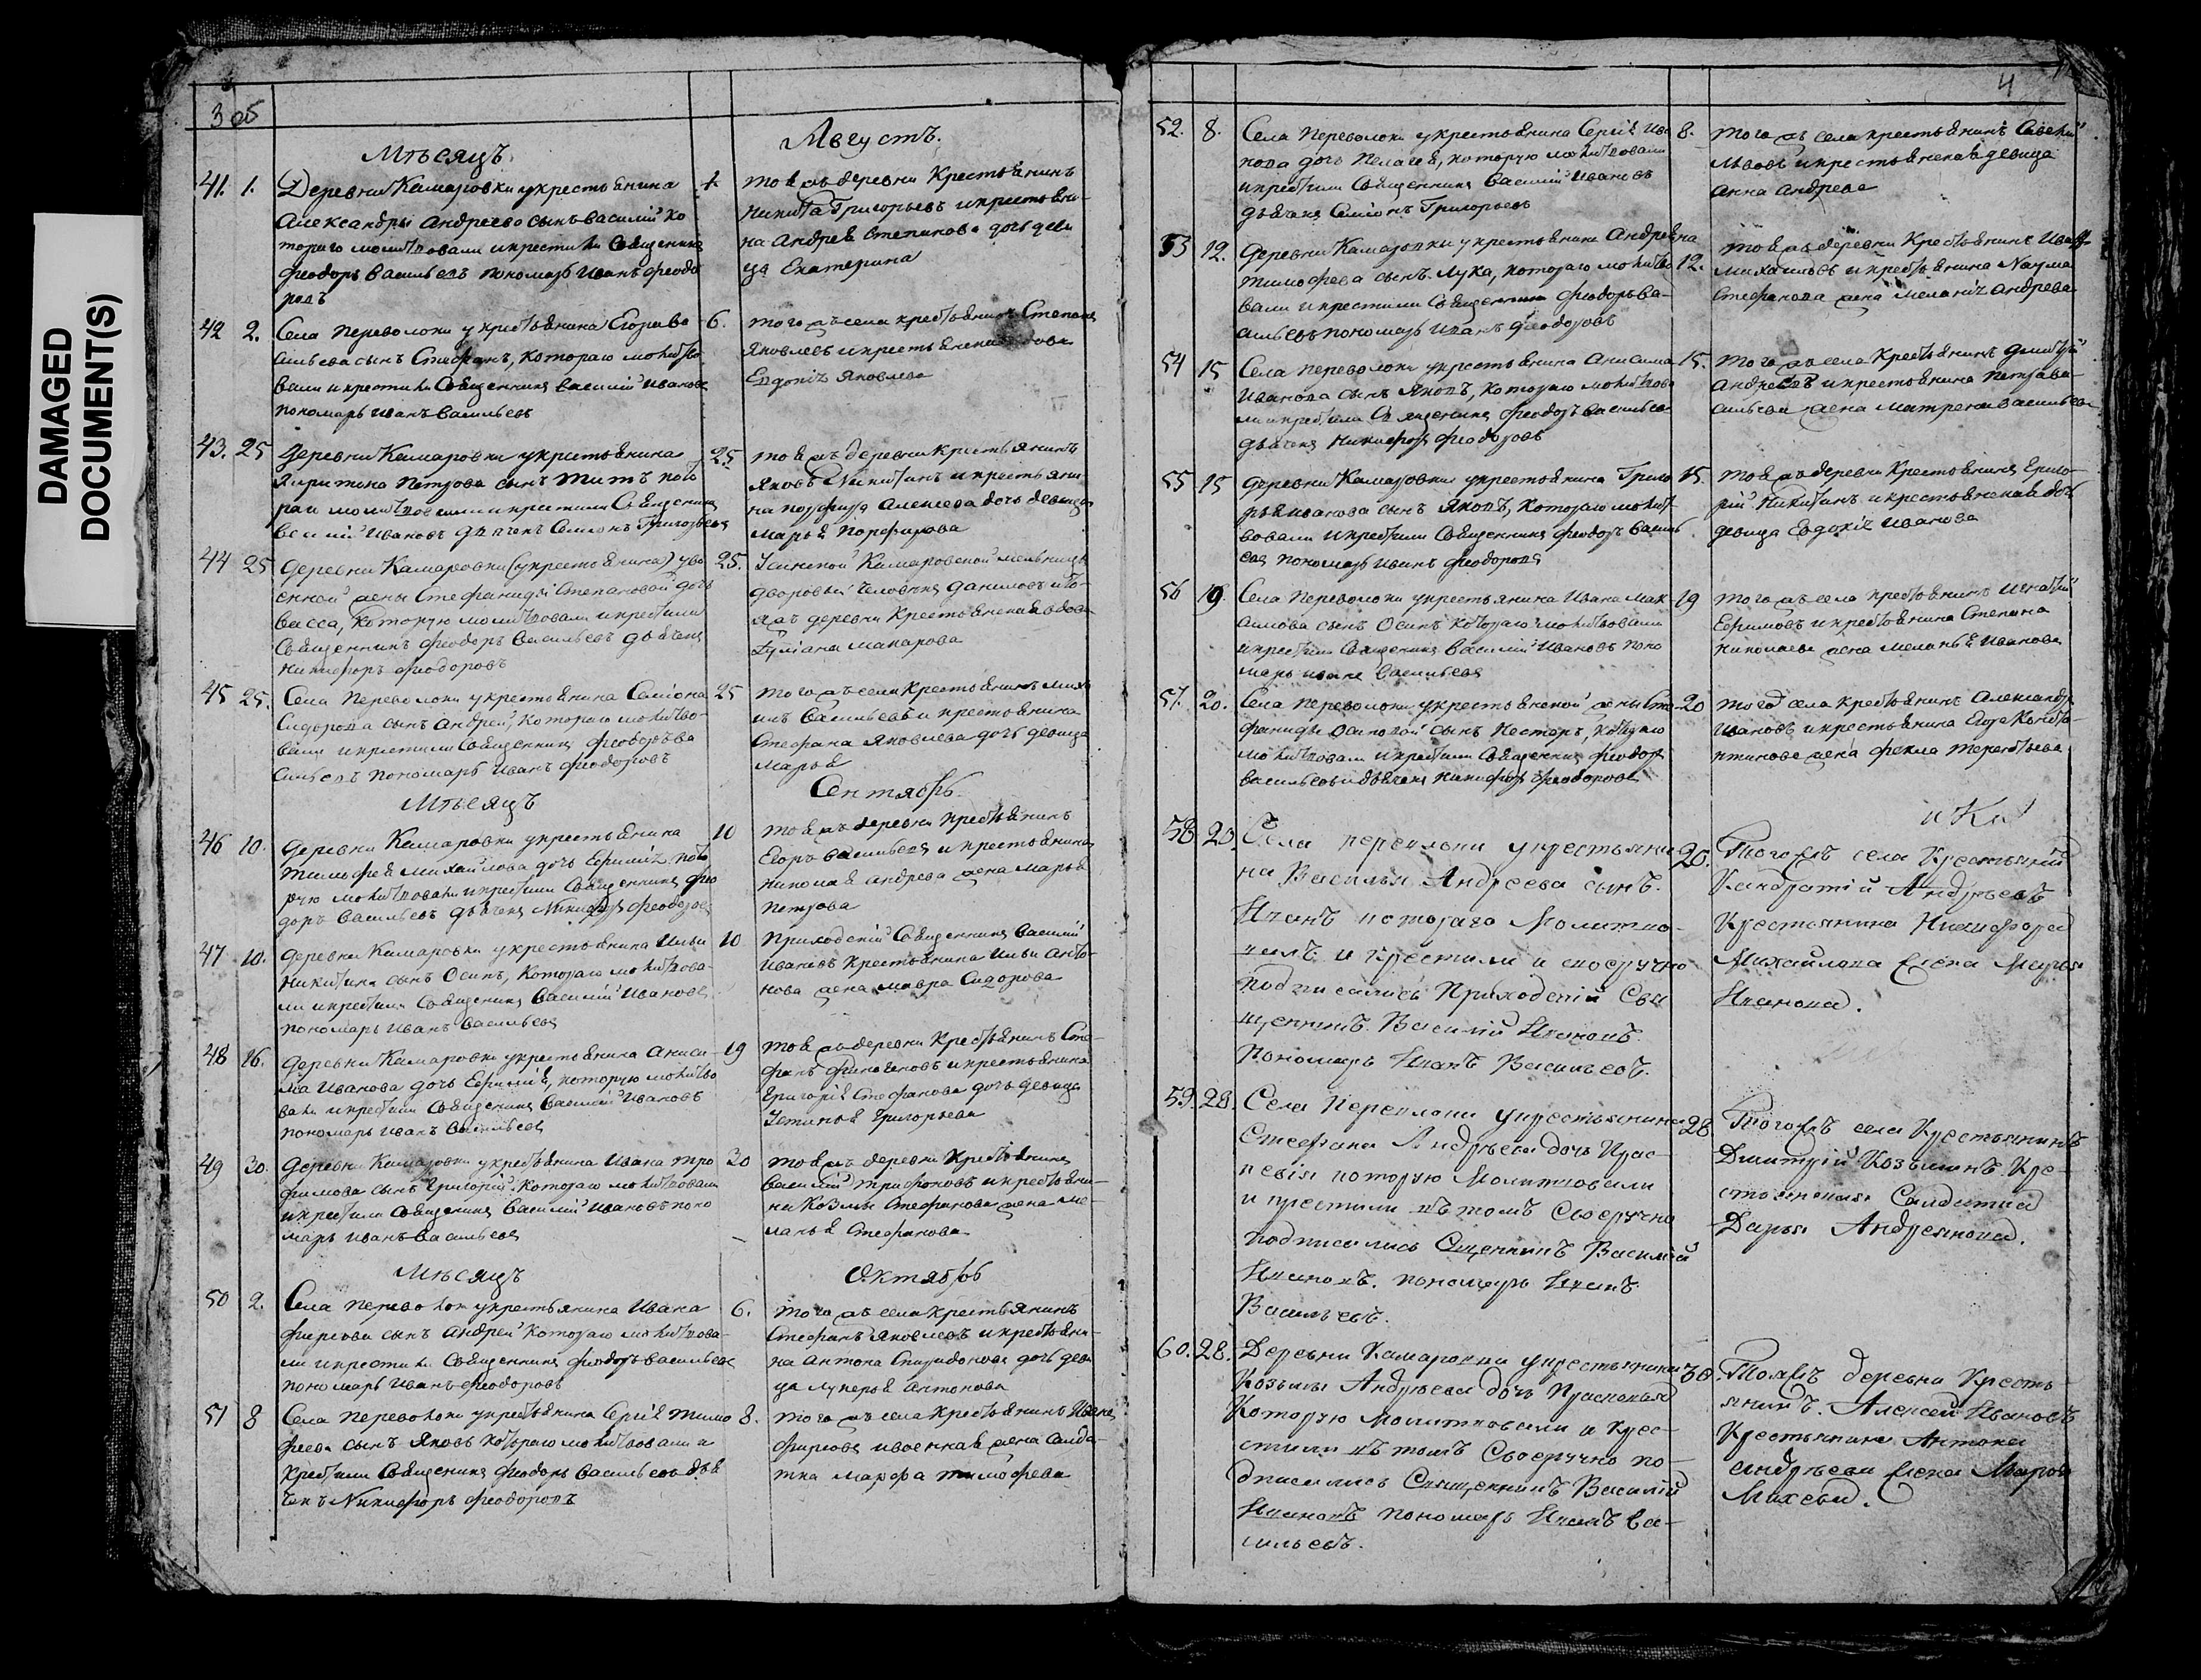 DAMAGED
DOCUMENT(S)
3 об
Мѣсяцъ
Августъ.
41. 1. Деревни Камаровки укрестьянина
Александры Андреева сынъ василий ко
тораго молитвовали икрестили Священникъ
феодоръ васильевъ пономарь Иванъ феодо
ровъ
1. тояжъ деревни Крестьянинъ
Никита Григорьевъ икрестьяни-
на андрея степанова дочь деви
ца Екатерина
42 2. Села переволоки укрестьянина Егора ва
сильева сынъ Стефанъ, котораго молитво
вали икрестили Священникъ василий Ивановъ
пономарь иванъ васильевъ
6. тогожъ села крестьянинъ Степанъ
Яковлевъ икрестьянская
Евдокия Яковлева
43. 25 Деревни Камаровки укрестьянина
Харитона Петрова сынъ Титъ кото
раго молитвовали икрестили Священникъ
василий Ивановъ дьячекъ Семионъ Григорьевъ
25. тояжъ деревни крестьянинъ
Яковъ Никитинъ икрестьяни
на порфира Алексеева дочь девица
марья Порфирова
44 25 Деревни Камаровки (укрестьянина) уво
енной жены Стефаниды Степановой дочь
васса, Которую молитвовали икрестили
Священникъ феодоръ васильевъ дьячекъ
Никифоръ феодоровъ
25. Камаровской мельницы
дворовый человекъ данилавъ ито-
яжъ деревни Крестьянская вдова
макарова
45 25. Села переволоки укрестьянина Семиона
Сидорова сынъ андрей, Котораго молитво-
вали икрестили Священникъ феодоръ ва
сильевъ пономарь Иванъ феодоровъ
25 тогожъ села Крестьянинъ миха
илъ васильевъ икрестьянина
Стефана Яковлева дочь девица
марья
Мѣсяцъ
Сентябрь
46 10. Деревни Камаровки укрестьянина
Тимофея михайлова дочь Ефимия кото
рую молитвовали икрестили Священникъ фео
доръ васильевъ дьячекъ Никифоръ феодоровъ
10 тояжъ деревни крестьянинъ
Егоръ васильевъ икрестьянина
николая андреева жена марья
петрова
47 10. Деревни Камаровки укрестьянина Ильи
Никитина сынъ Осипъ, Котораго молитвова
ли икрестили Священникъ василий Ивановъ
пономарь Иванъ васильевъ
10 приходский Священникъ василий
Ивановъ крестьянина Ильи анто-
нова жена мавра Сидорова
48 16. Деревни Камаровки укрестьянина аниси-
ма Иванова дочь Ефимия, которую молитво
вали икрестили Священникъ василий Ивановъ
пономарь Иванъ васильевъ
19 тояжъ деревни Крестьянинъ Сте-
фанъ икрестьянина
Григория Стефанова дочь девица
Устинья Григорьева
49 30. Деревни Камаровки укрестьянина Ивана тро
фимова сынъ Григорий. Котораго молитвовали
икрестили Священникъ василий Ивановъ поно
марь иванъ васильевъ
30 тояжъ деревни крестьянинъ
василий трифоновъ икрестьяни-
на Козмы Стефанова жена ме-
ланья Стефанова
Мѣсяцъ
Октябрь
50 2. Села переволоки укрестьянина Ивана
фирсова сынъ андрей Котораго молитвова-
ли икрестили Священникъ феодоръ васильевъ
пономарь Иванъ феодоровъ
6. тогожъ села крестьянинъ
Стефанъ Яковлевъ икрестьяни-
на антона Спиридонова дочь деви
ца лукерья антонова
51 8 Села переволоки укрестьянина Сергея тимо
феева сынъ Яковъ Котораго молитвовали и
крестили Священникъ феодоръ васильевъ дья
чекъ Никифоръ феодоровъ
8. тогожъ села Крестьянинъ Иванъ
фирсовъ ивоенная жена салда-
тка марфа тимофеева
4
52. 8. Села переволоки укрестьянина Сергея Ива
нова дочь Пелагея, которую молитвовали
икрестили Священникъ василий Ивановъ
дьячекъ Семионъ Григорьевъ
8. тогожъ села крестьянинъ
Львовъ икрестьянская девица
анна андреева
53 12. Деревни Камаровки укрестьянина Андреяна
тимофеева сынъ Лука, Котораго молитво
вали икрестили Священникъ феодоръ ва-
сильевъ пономарь Иванъ феодоровъ
12. тояжъ деревни Крестьянинъ Иванъ
михайловъ икрестьянина Наума
Стефанова жена мелания андреева
54 15 Села переволоки укрестьянина Анисима
Иванова сынъ Яковъ, Котораго молитвова
ли икрестили Священникъ феодоръ васильевъ
дьячекъ Никифоръ феодоровъ
15. тогожъ села Крестьянинъ дмитрий
андреевъ икрестьянина петра ва-
сильева жена матрена васильева
55 15 Деревни Камаровки укрестьянина Григо
рья иванова сынъ Яковъ, Котораго молит
вовали икрестили Священникъ феодоръ василь
евъ пономарь иванъ феодоровъ
15. тояжъ деревни Крестьянинъ Григо-
рий Никитинъ икрестьянская дочь
девица Евдокия Иванова
56 19. Села переволоки укрестьянина Ивана мак
симова сынъ Осипъ Котораго молитвовали
икрестили Священникъ василий Ивановъ поно
марь иванъ васильевъ
19 тогожъ села крестьянинъ Игнатий
Ефимовъ икрестьянина Степана
николаева жена меланья Иванова
57. 20. Села переволоки укрестьянской жены Сте
фаниды Осиповой сынъ Несторъ, Котораго
молитвовали икрестили Священникъ феодоръ
васильевъ идьячекъ никифоръ феодоровъ
20 тогожъ села крестьянинъ Александръ
Ивановъ икрестьянина Егора Конста-
нтинова жена фекла терентьева
58 20. Села переволоки укрестьяни
на Василья Андреева сынъ.
Иванъ котораго Молитво-
валъ и крестили и своеручно
подписались Приходский Свя
щенникъ Василий Ивановъ.
Пономарь Иванъ Васильевъ.
20. Тогожъ села Крестьянинъ
Кандратий Андреевъ
Крестьянина Никифора
Михайлова жена Марья
Иванова.
59. 28. Села Переволоки укрестьянина
Стефана Андреева дочь Прас-
ковия которую Молитвовали
и крестили вътомъ Своеручно
подписались Сщенникъ Василий
Ивановъ. пономарь Иванъ
Васильевъ.
28 Тогожъ села Крестьянинъ
Дмитрий Козьминъ Кре-
стьянская Салдатка
Дарья Андреянова.
60. 28. Деревни Камаровки укрестьянина
Козьмы Андреева дочь Прасковья
Которую Молитвовали и крес-
тили вътомъ Своеручно по-
дписались Священникъ Василий
Ивановъ пономарь Иванъ Ва-
сильевъ.
30. Тояжъ деревни Кресть-
янинъ. Алексей Ивановъ
Крестьянина Антона
андреева жена Марья
Михеева.